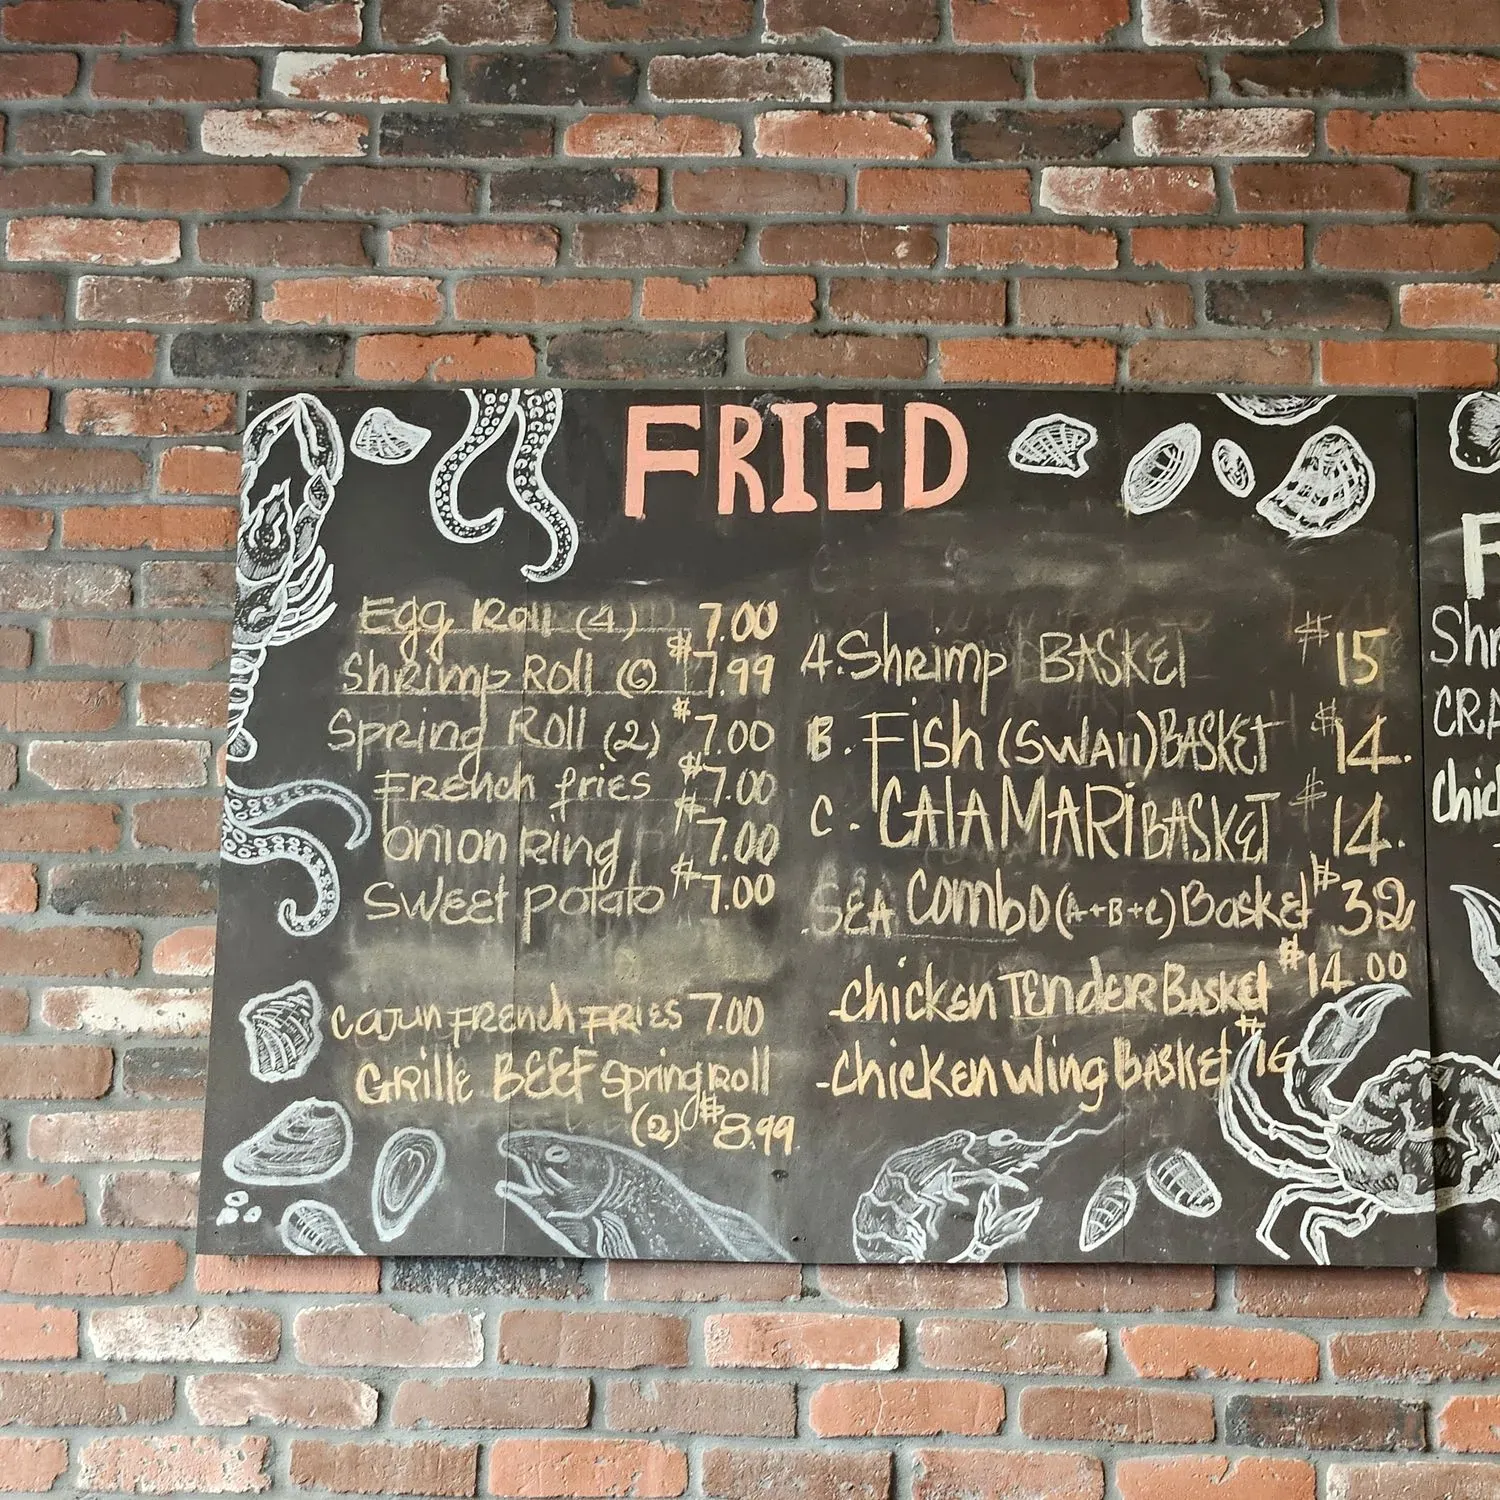 FRIED
Egg Roll (4) 7.00
Shrimp Roll (6) $7.99
Spring Roll (2) $7.00
French fries $7.00
Onion Ring $7.00
Sweet Potato $7.00
Cajun French Fries 7.00
Grille BEEF Spring Roll
(2) $8.99
A. Shrimp BASKET $15
B. Fish (Swaii) BASKET $14.
C. CALAMARI BASKET $14.
SEA Combo (A+B+C) Basket $32
-Chicken Tender Basket $14.00
-Chicken Wing Basket $16
Shr
CRA
Chic